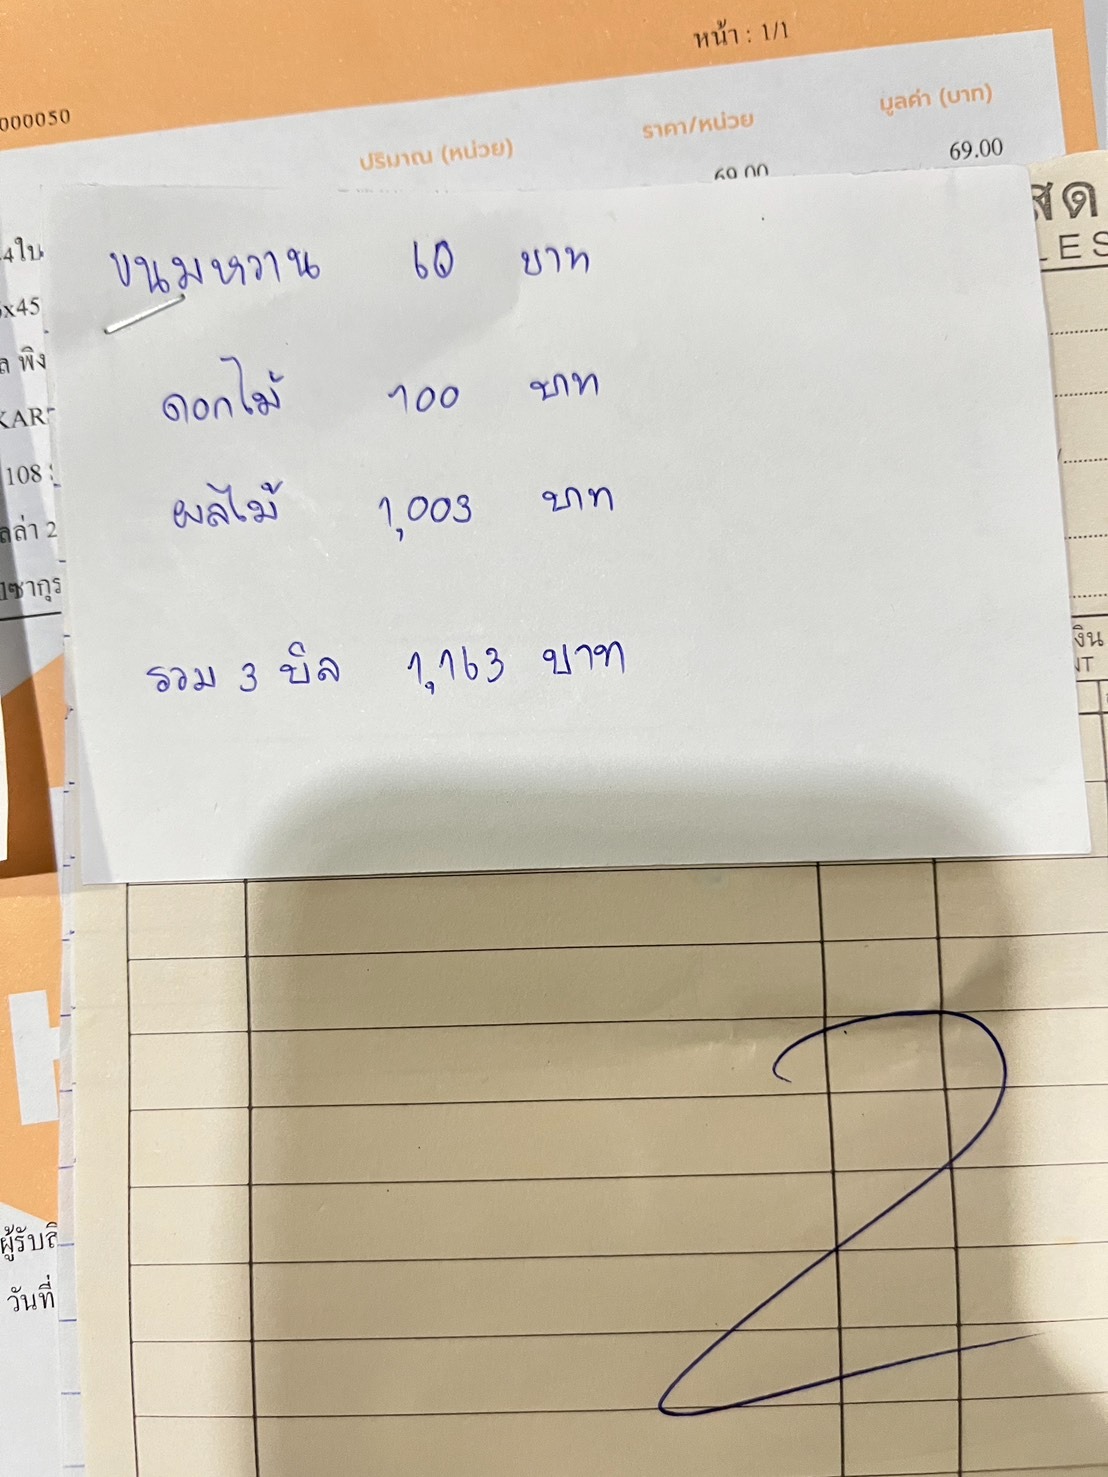 หน้า : 1/1
000050
ปริมาณ (หน่วย) ราคา/หน่วย มูลค่า (บาท)
69.00 69.00
สด
LES
4ใบ
x45
พิง
KAR
108
ล่า 2
ซากุร
ขนมหวาน 60 บาท
ดอกไม้ 100 บาท
ผลไม้ 1,003 บาท
รวม 3 บิล 1,163 บาท
งิน
NT
2
ผู้รับสิ
วันที่